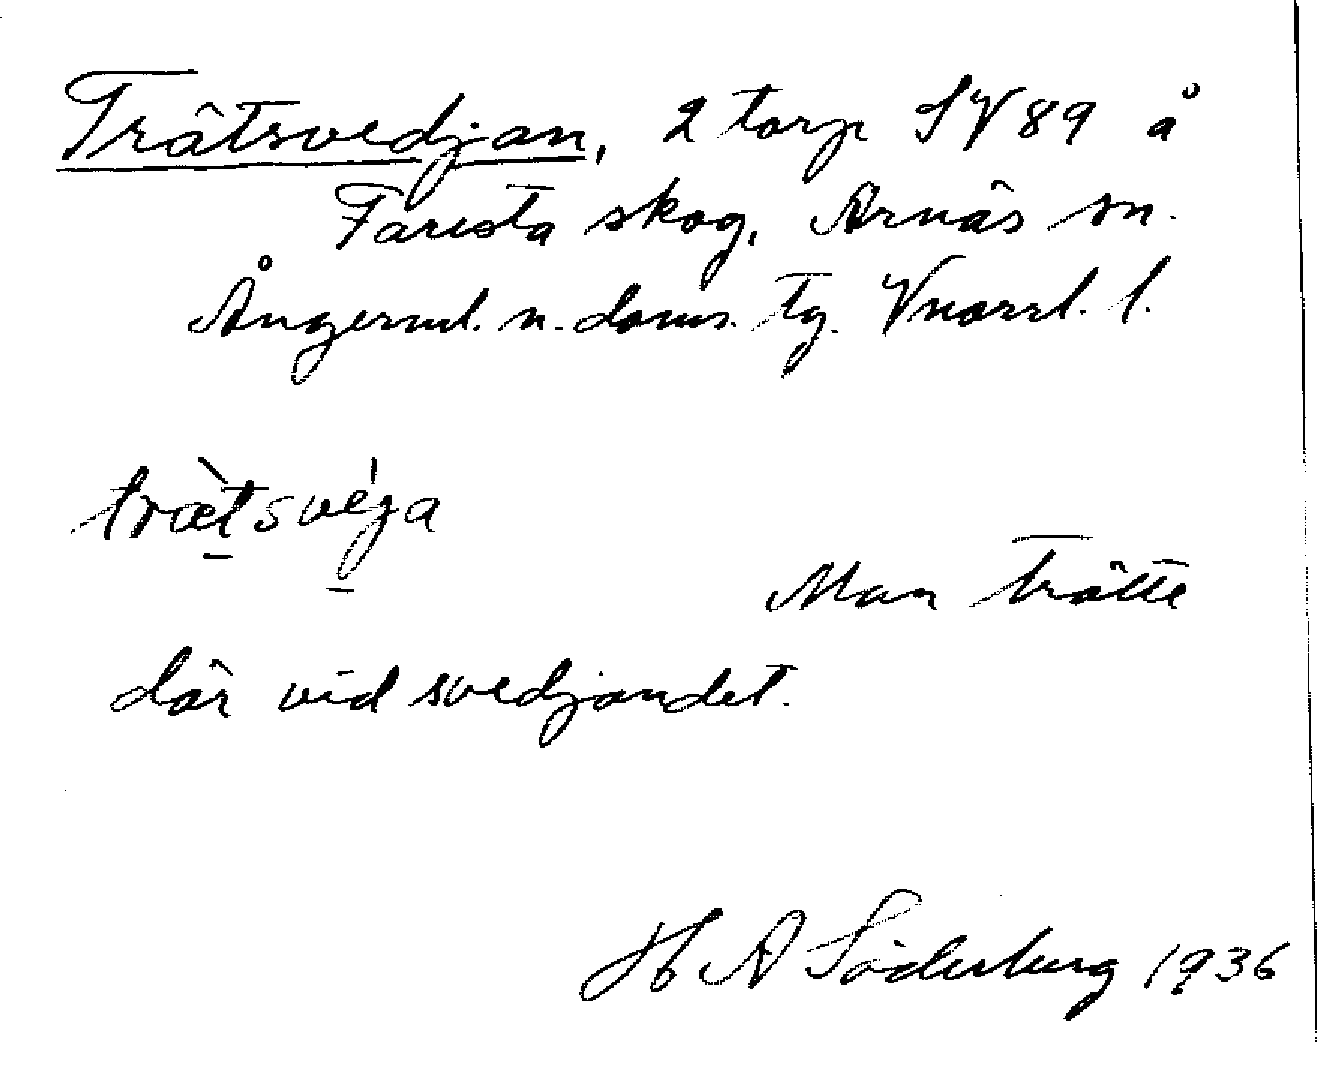 Trätsvedjan, 2 torp SV 89 å
Faresta skog, Arnäs sn.
Ångerml. n. doms. tg. Vnorrl. l.
trætsvéja
Man trätte
där vid svedjandet.
H A Söderberg 1936